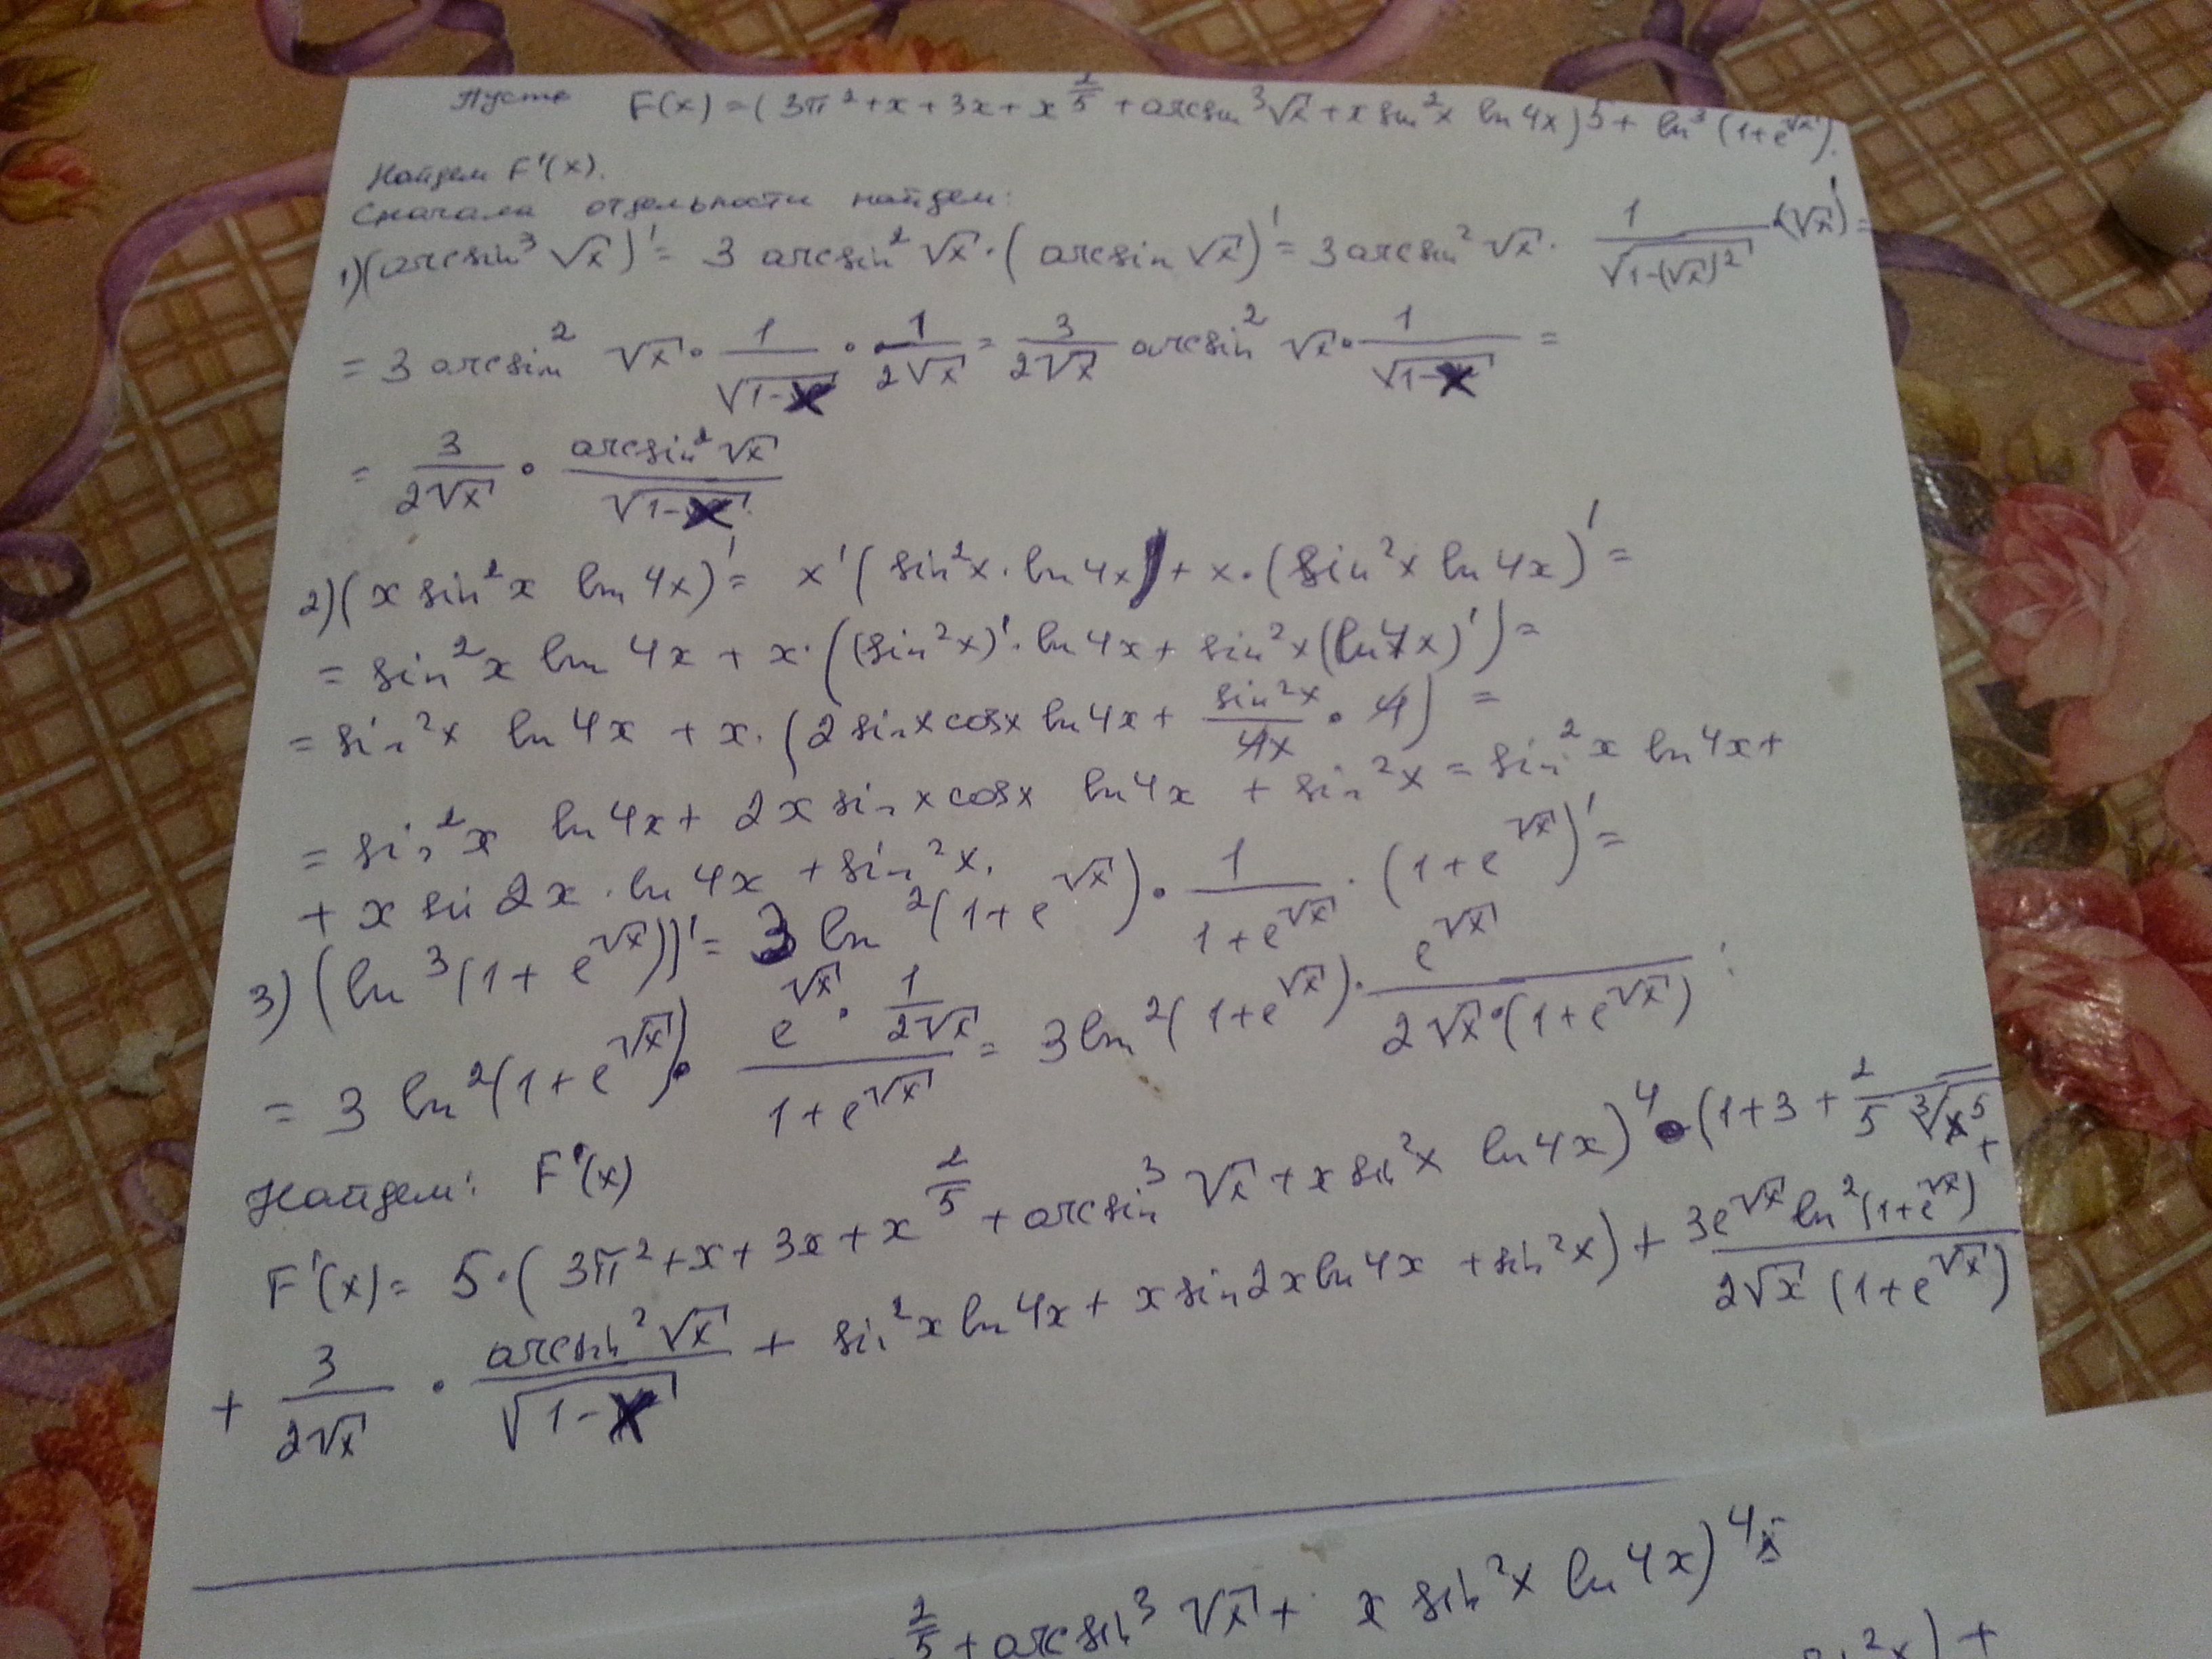 Пусть F(x) = (3π² + x + 3x + x^(2/5) + arcsin³√x + x sin²x ln 4x)⁵ + ln³(1+e^√x).
Найдем F'(x).
Сначала отдельности найдем:
1) (arcsin³ √x)' = 3 arcsin² √x · (arcsin √x)' = 3 arcsin² √x · 1/√(1-(√x)²) · (√x)' =
= 3 arcsin² √x · 1/√(1-x) · 1/(2√x) = 3/(2√x) arcsin² √x · 1/√(1-x) =
= 3/(2√x) · arcsin² √x/√(1-x)
2) (x sin²x ln 4x)' = x'(sin²x · ln 4x) + x · (sin²x ln 4x)' =
= sin²x ln 4x + x · ((sin²x)' · ln 4x + sin²x (ln 4x)') =
= sin²x ln 4x + x · (2 sin x cos x ln 4x + sin²x/4x · 4) =
= sin²x ln 4x + 2x sin x cos x ln 4x + sin²x = sin²x ln 4x +
+ x sin 2x · ln 4x + sin²x.
3) (ln³(1+e^√x))' = 3 ln²(1+e^√x) · 1/(1+e^√x) · (1+e^√x)' =
= 3 ln²(1+e^√x) · (e^√x · 1/(2√x))/(1+e^√x) = 3 ln²(1+e^√x) · e^√x/(2√x · (1+e^√x)) ;
Найдем: F'(x)
F'(x) = 5 · (3π² + x + 3x + x^(2/5) + arcsin³ √x + x sin²x ln 4x)⁴ · (1+3+ 2/(5 ∛x⁵) +
+ 3/(2√x) · arcsin² √x/√(1-x) + sin²x ln 4x + x sin 2x ln 4x + sin²x) + 3e^√x ln²(1+e^√x)/(2√x (1+e^√x))
2/5 + arcsin³ √x + x sin²x ln 4x)⁴
²x) +